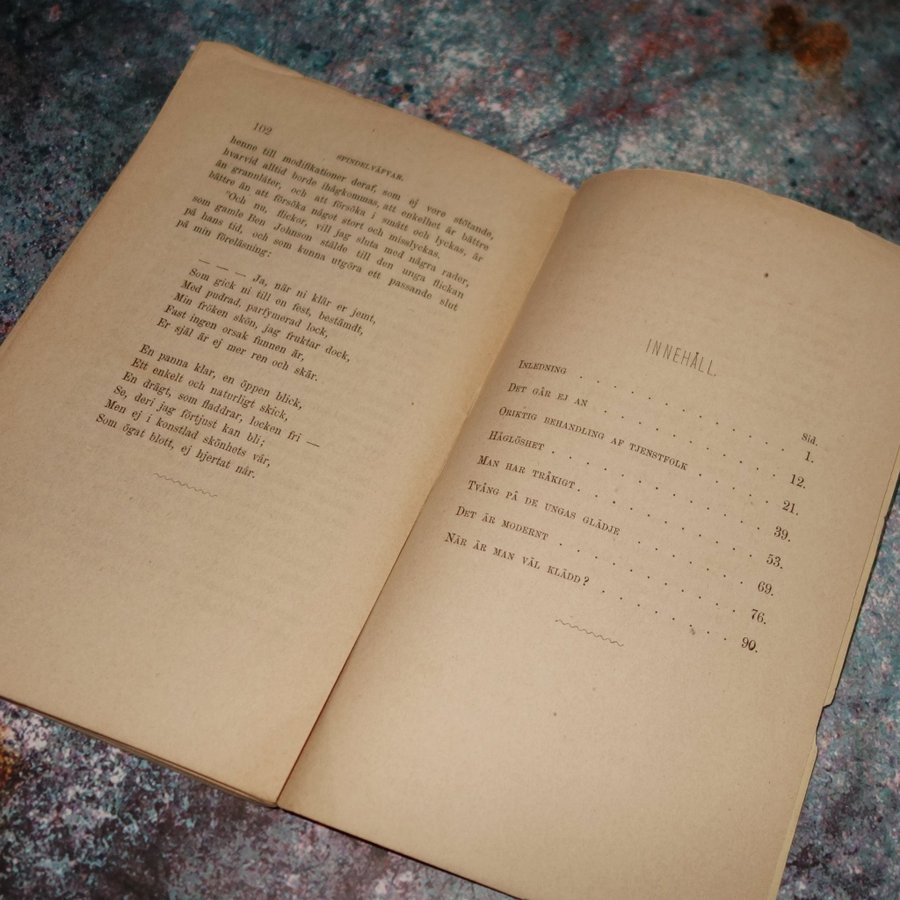 102
SPINDELVÄFVAR.
henne till modifikationer deraf, som ej vore stötande,
hvarvid alltid borde ihågkommas, att enkelhet är bättre
än grannlåter, och att försöka i smått och lyckas, är
bättre än att försöka något stort och misslyckas.
"Och nu, flickor, vill jag sluta med några rader,
som gamle Ben Johnson stälde till den unga flickan
på hans tid, och som kunna utgöra ett passande slut
på min föreläsning:
— — — Ja, när ni klär er jemt,
Som gick ni till en fest, bestämdt,
Med pudrad, parfymerad lock,
Min fröken skön, jag fruktar dock,
Fast ingen orsak funnen är,
Er själ är ej mer ren och skär.
En panna klar, en öppen blick,
Ett enkelt och naturligt skick,
En drägt, som fladdrar, locken fri —
Se, deri jag förtjust kan bli;
Men ej i konstlad skönhets vår,
Som ögat blott, ej hjertat når.
INNEHÅLL.
Sid.
INLEDNING . . . . . . . . . 1.
DET GÅR EJ AN . . . . . . . . 12.
ORIKTIG BEHANDLING AF TJENSTFOLK . . . . 21.
HÅGLÖSHET . . . . . . . . . 39.
MAN HAR TRÅKIGT . . . . . . . . 53.
TVÅNG PÅ DE UNGAS GLÄDJE . . . . . 69.
DET ÄR MODERNT . . . . . . . . 76.
NÄR ÄR MAN VÄL KLÄDD? . . . . . . 90.